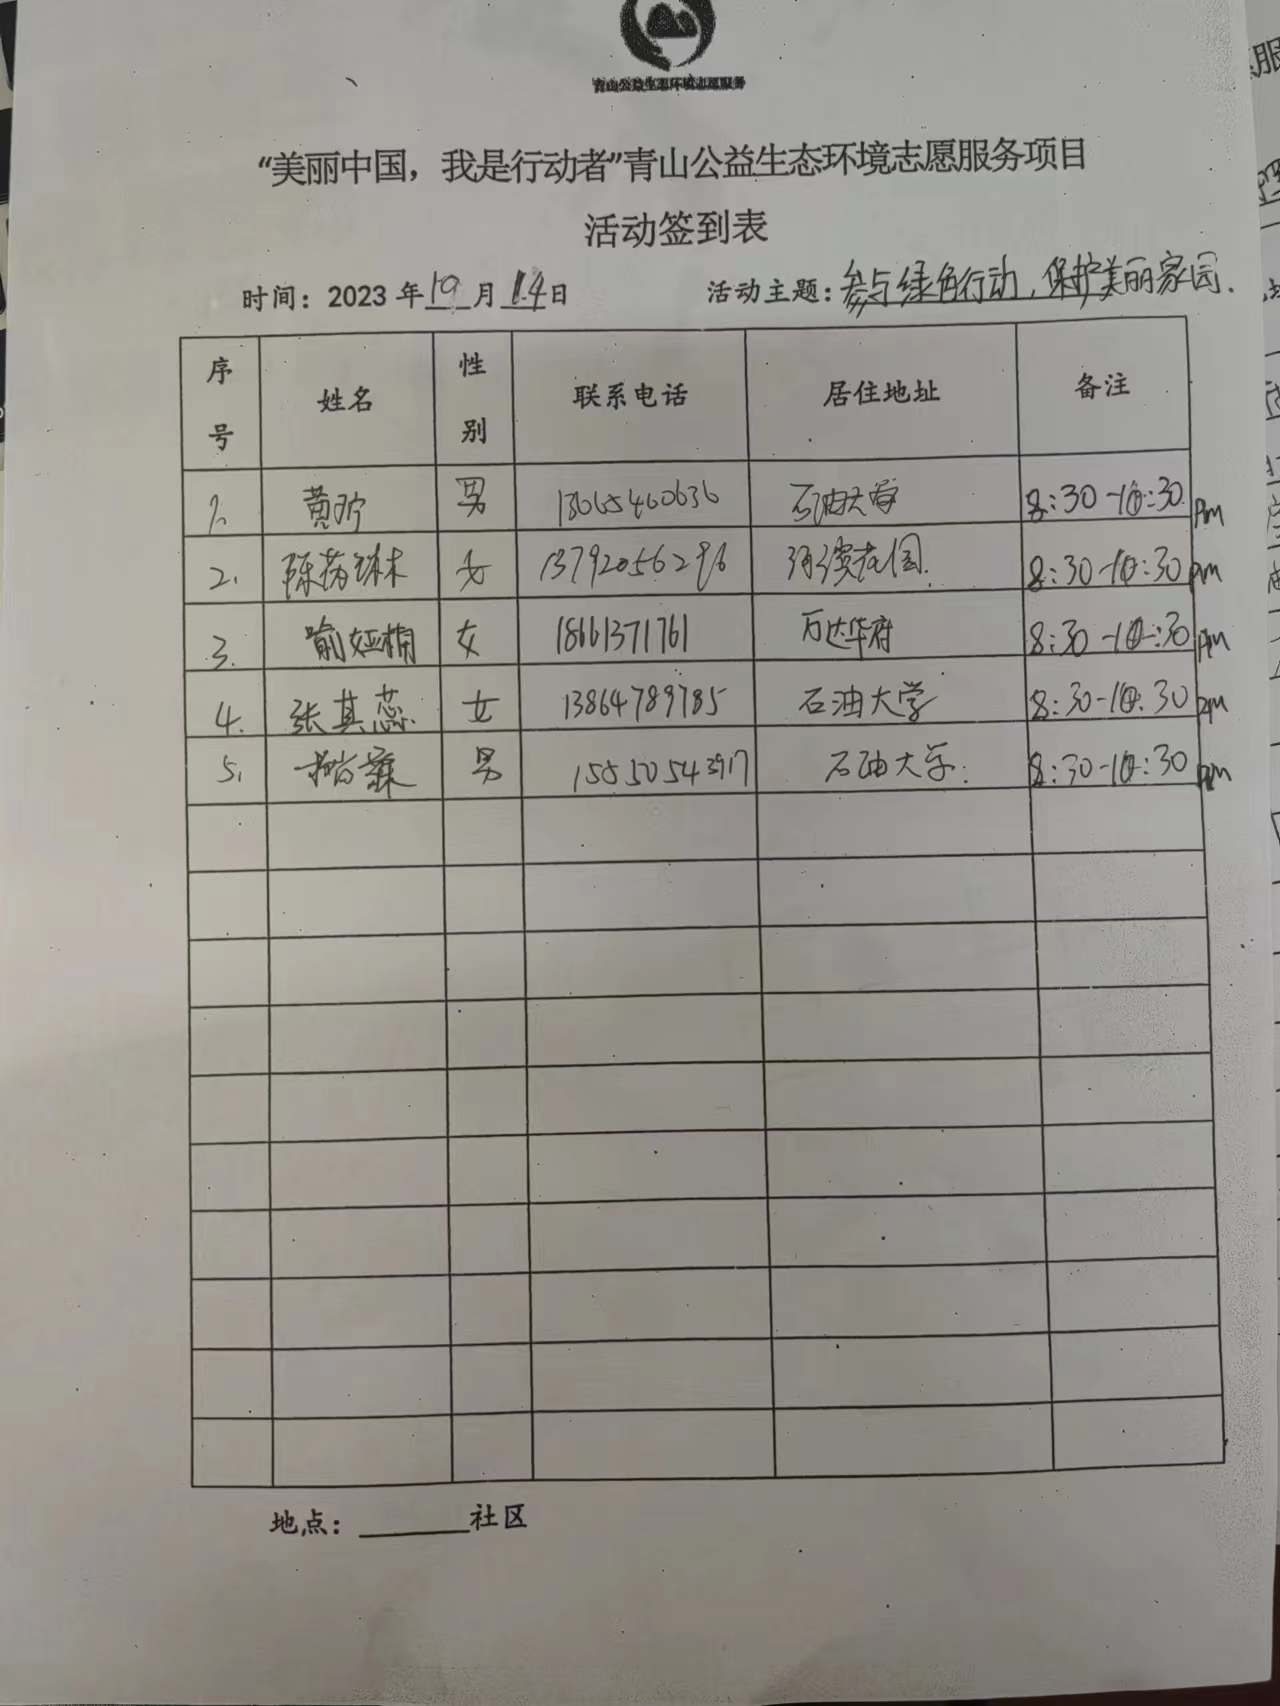 青山公益生态环境志愿服务
“美丽中国，我是行动者”青山公益生态环境志愿服务项目
活动签到表
时间：2023 年 10 月 14 日 活动主题：参与绿色行动，保护美丽家园.
序号 姓名 性别 联系电话 居住地址 备注
1. 黄 男 18665460636 石油大学 8:30-10:30 pm
2. 陈 女 13792056296 花园. 8:30-10:30 pm
3. 喻娅楠 女 18661371761 万达华府 8:30-10:30 pm
4. 张其蕊. 女 13864789785 石油大学 8:30-10:30 pm
5. 男 15550543917 石油大学. 8:30-10:30 pm
地点：______社区